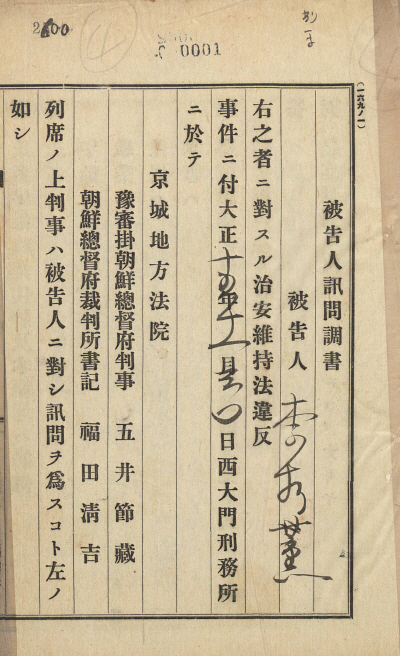 0001
(一六九ノ一)
被告人訊問調書
被告人 李 薫
右之者ニ對スル治安維持法違反
事件ニ付大正十五年十一月 日西大門刑務所
ニ於テ
京城地方法院
豫審掛朝鮮總督府判事 五井節藏
朝鮮總督府裁判所書記 福田淸吉
列席ノ上判事ハ被告人ニ對シ訊問ヲ爲スコト左ノ
如シ